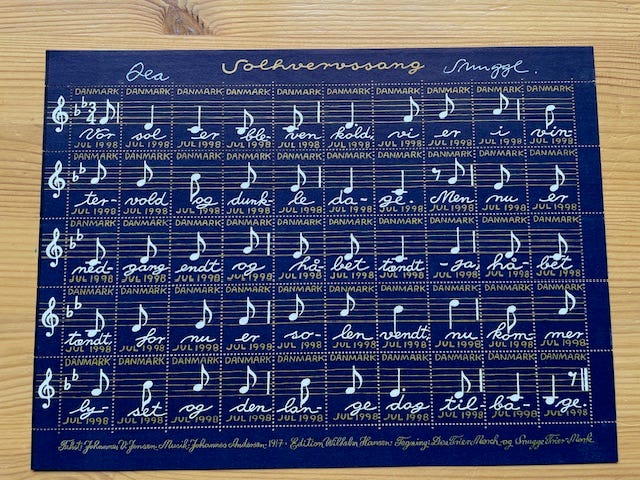 Dea Solhvervssang
DANMARK DANMARK DANMARK DANMARK DANMARK DANMARK DANMARK DANMARK DANMARK DANMARK
Vor sol er ble- ven kold, vi er i vin-
JUL 1998 JUL 1998 JUL 1998 JUL 1998 JUL 1998 JUL 1998 JUL 1998 JUL 1998 JUL 1998 JUL 1998
DANMARK DANMARK DANMARK DANMARK DANMARK DANMARK DANMARK DANMARK DANMARK DANMARK
ter- vold og dunk- le da- ge. Men nu er
JUL 1998 JUL 1998 JUL 1998 JUL 1998 JUL 1998 JUL 1998 JUL 1998 JUL 1998 JUL 1998 JUL 1998
DANMARK DANMARK DANMARK DANMARK DANMARK DANMARK DANMARK DANMARK DANMARK DANMARK
ned- gang endt og hå- bet tændt - ja hå- bet
JUL 1998 JUL 1998 JUL 1998 JUL 1998 JUL 1998 JUL 1998 JUL 1998 JUL 1998 JUL 1998 JUL 1998
DANMARK DANMARK DANMARK DANMARK DANMARK DANMARK DANMARK DANMARK DANMARK DANMARK
tændt, for nu er so- len vendt, nu kom- mer
JUL 1998 JUL 1998 JUL 1998 JUL 1998 JUL 1998 JUL 1998 JUL 1998 JUL 1998 JUL 1998 JUL 1998
DANMARK DANMARK DANMARK DANMARK DANMARK DANMARK DANMARK DANMARK DANMARK DANMARK
ly- set og den lan- ge dag til- ba- ge.
JUL 1998 JUL 1998 JUL 1998 JUL 1998 JUL 1998 JUL 1998 JUL 1998 JUL 1998 JUL 1998 JUL 1998
Tekst: Johannes V. Jensen. Musik: Johannes Andersen. 1917. Edition Wilhelm Hansen. Tegning: Dea Trier Mørch og Snugge Trier Mørk